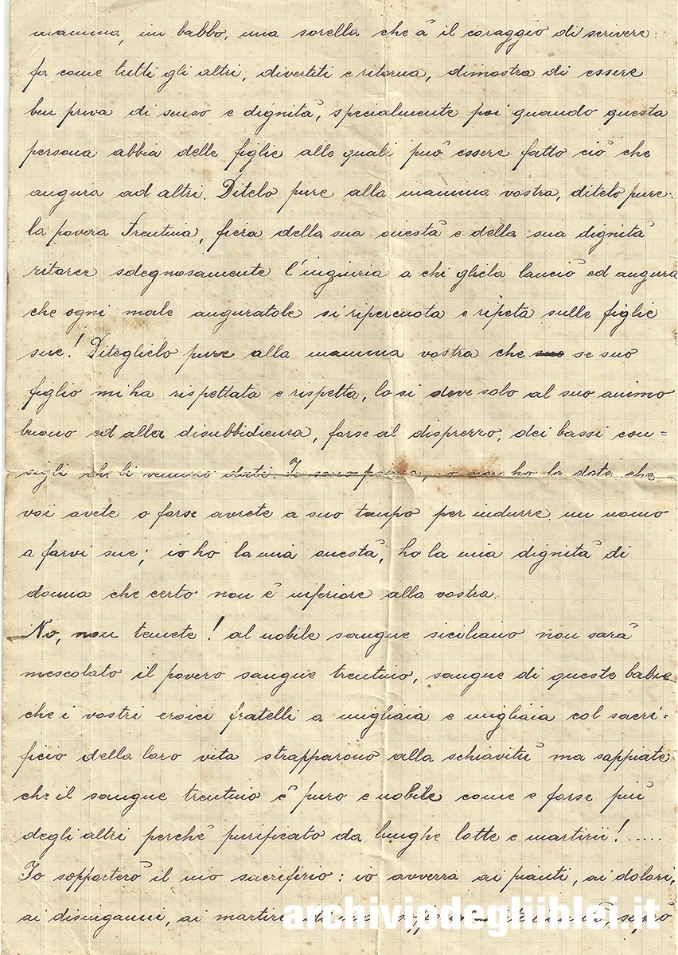 mamma, un babbo, una sorella che à il coraggio di scrivere:
fa come tutti gli altri, divertiti e ritorna, dimostra di essere
ben priva di senso e dignità, specialmente poi quando questa
persona abbia delle figlie alle quali può essere fatto ciò che
augura ad altri. Ditelo pure alla mamma vostra, ditelo pure:
la povera Trentina, fiera della sua onestà e della sua dignità
ritorce sdegnosamente l'ingiuria a chi gliela lanciò ed augura
che ogni male auguratole si ripercuota e ripeta sulle figlie
sue! Diteglielo pure alla mamma vostra che se suo
figlio mi ha rispettata e rispetta, lo si deve solo al suo animo
buono ed alla disubbidienza, forse al disprezzo, dei bassi con=
sigli che li vennero dati. Io sono povera, io non ho la dote che
voi avete o forse avrete a suo tempo per indurre un uomo
a farvi sue; io ho la mia onestà, ho la mia dignità di
donna che certo non è inferiore alla vostra.
No, non temete! al nobile sangue siciliano non sarà
mescolato il povero sangue trentino, sangue di queste balze
che i vostri eroici fratelli a migliaia e migliaia col sacri=
ficio della loro vita strapparono alla schiavitù ma sappiate
che il sangue trentino è puro e nobile come e forse più
degli altri perchè purificato da lunghe lotte e martirii!.....
Io sopporterò il mio sacrifizio: io avvezza ai pianti, ai dolori,
ai disinganni, ai martiri
archiviodegliiblei.it